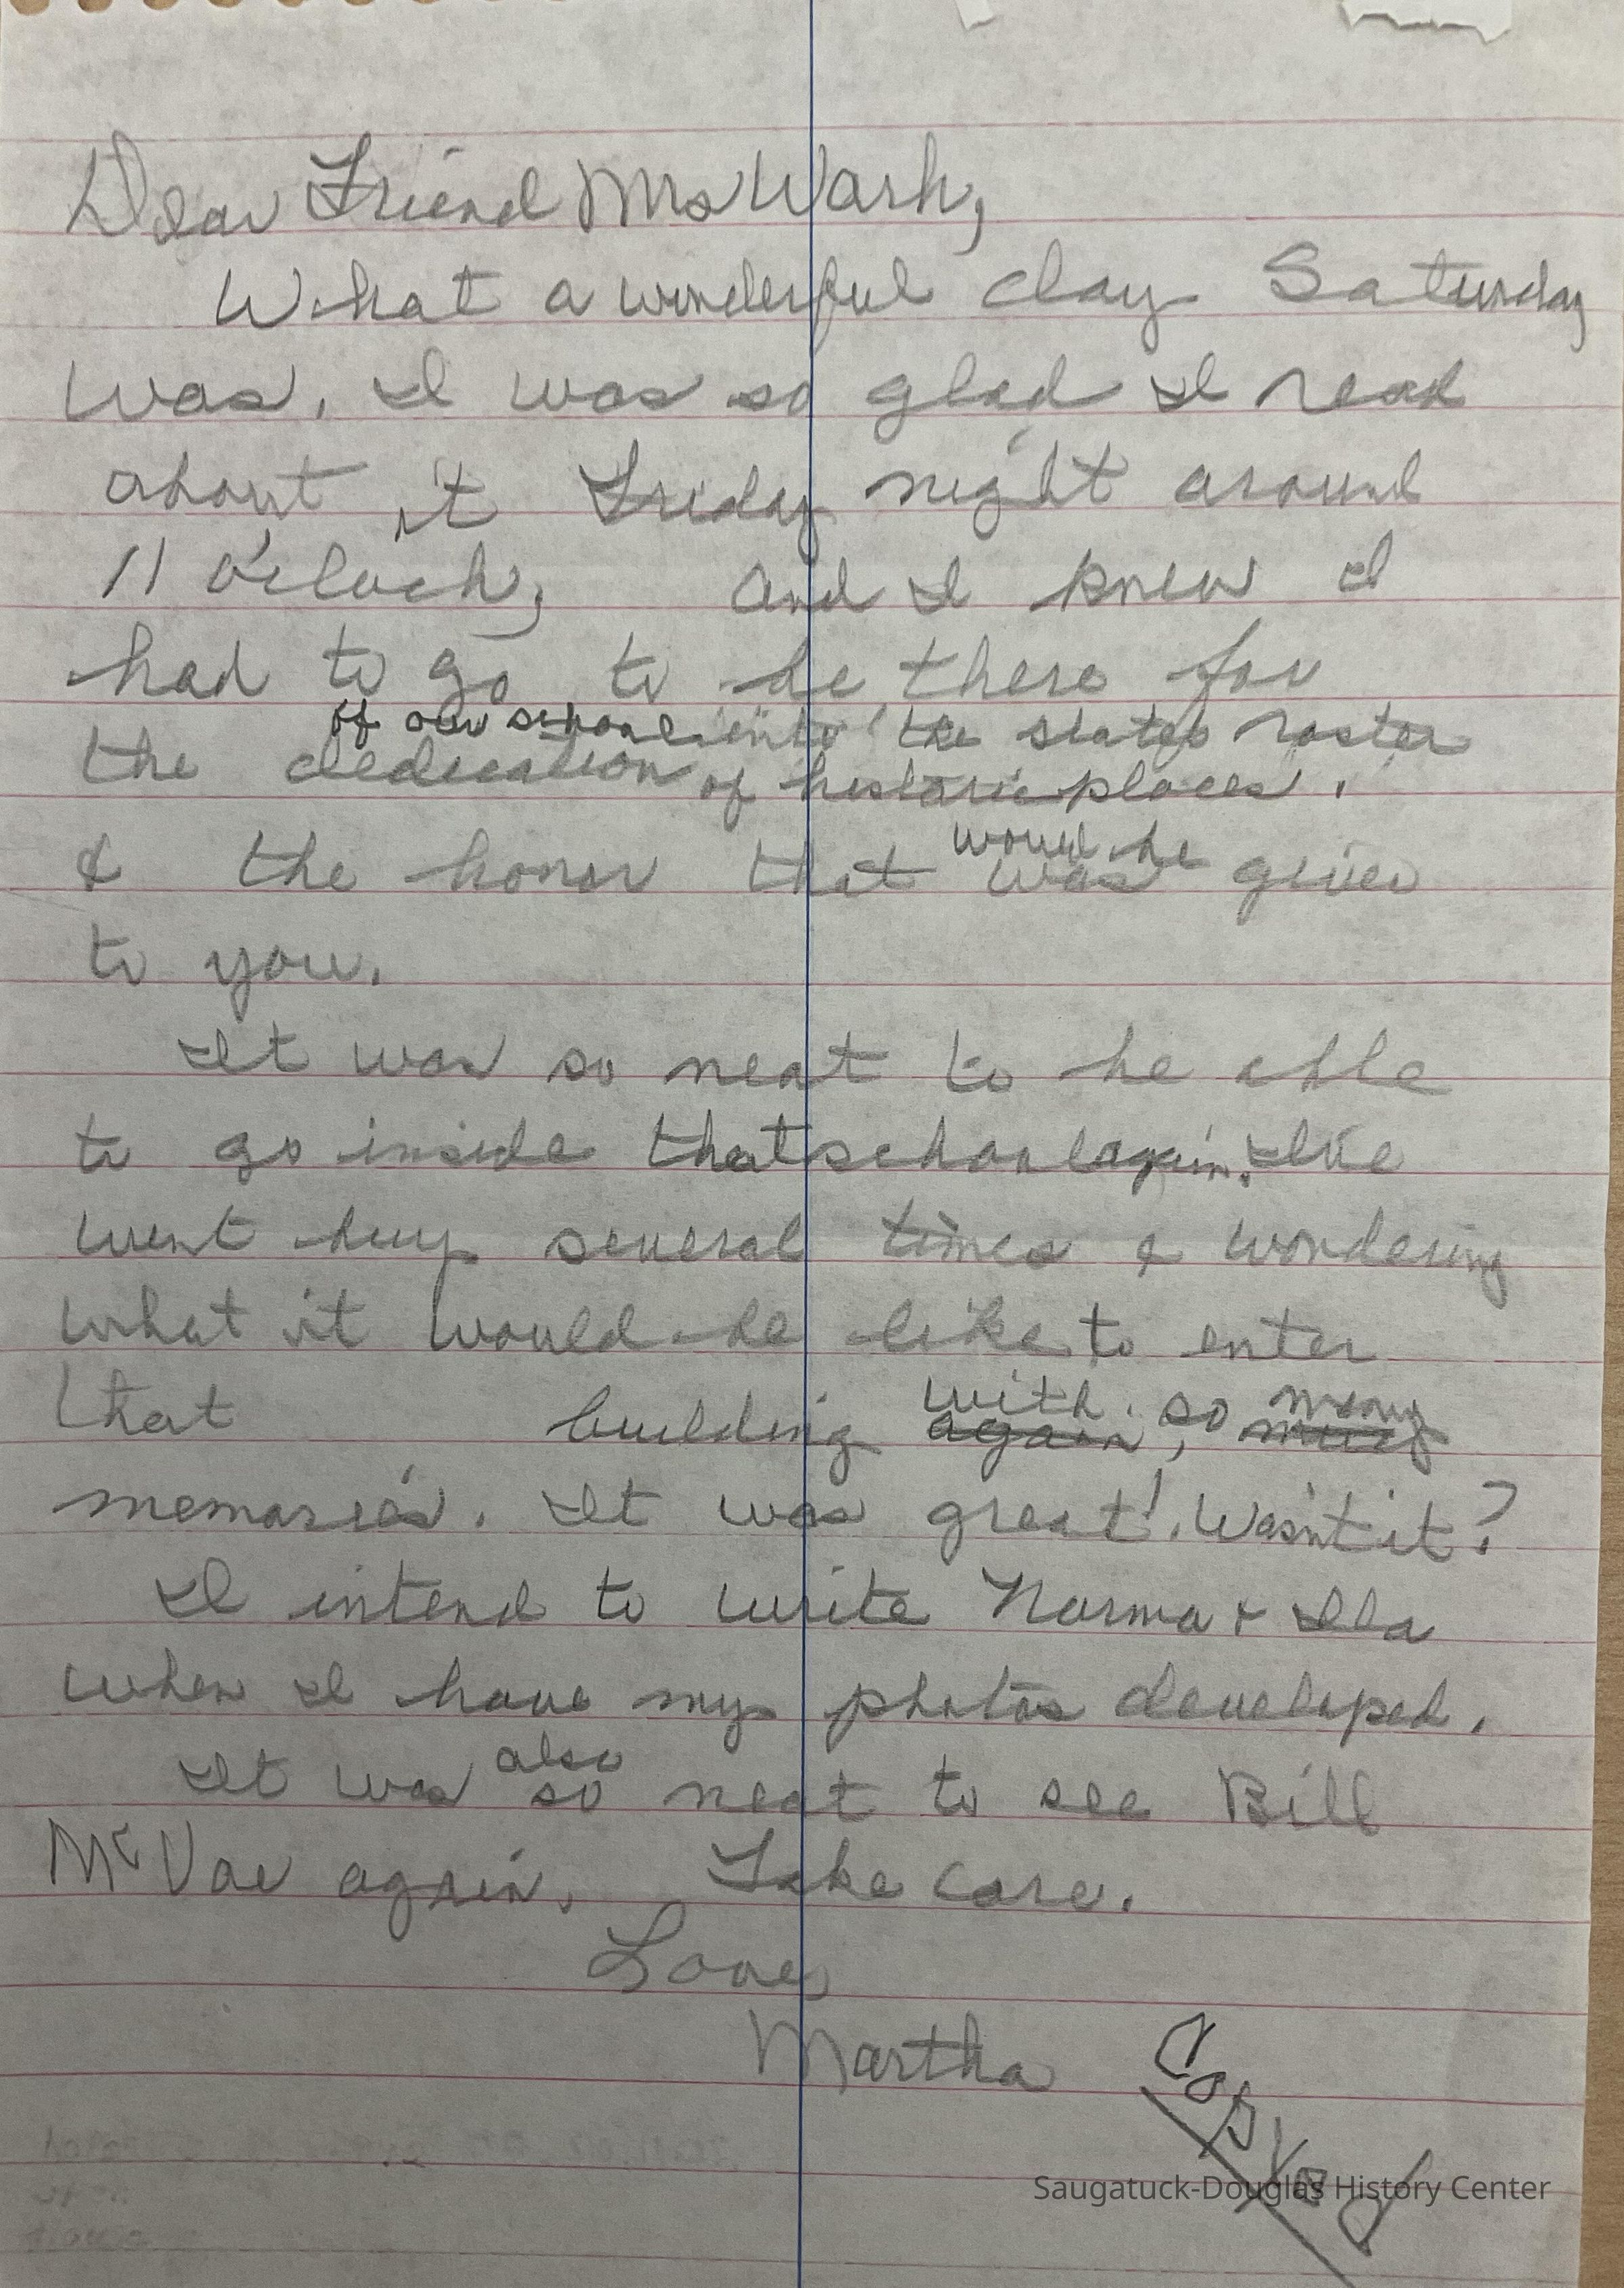 Dear Friend Mrs Warh,
What a wonderful day Saturday
was. I was so glad I read
about it Friday night around
11 o'clock, and I knew I
had to go to be there for
of our school into the states roster
the dedication of historic places.
would be
& the honor that was given
to you.
It was so neat to be able
to go inside that school again. I've
went buy several times & wondering
what it would be like to enter
with so many
that building again,
memories. It was great! Wasn't it?
I intend to write Norma & Ila
when I have my photos developed.
also
It was so neat to see Bill
McVae again. Take care.
Love
Martha
Copyed
Saugatuck-Douglas History Center